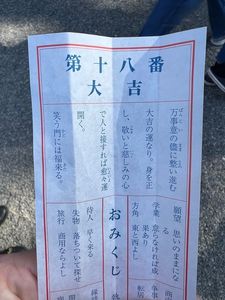 第十八番
大吉
万事意の儘に整い進む
大吉の運なり。身を正
し、敬いと慈しみの心
で人と接すれば愈々運
開く。
笑う門には福来る。
おみくじ
願望 思いのままにな
る
学業 怠らなければ成
果あり
方角 東と西よし
待人 早く来る
失物 落ちついて探せ
旅行 商用ならよし